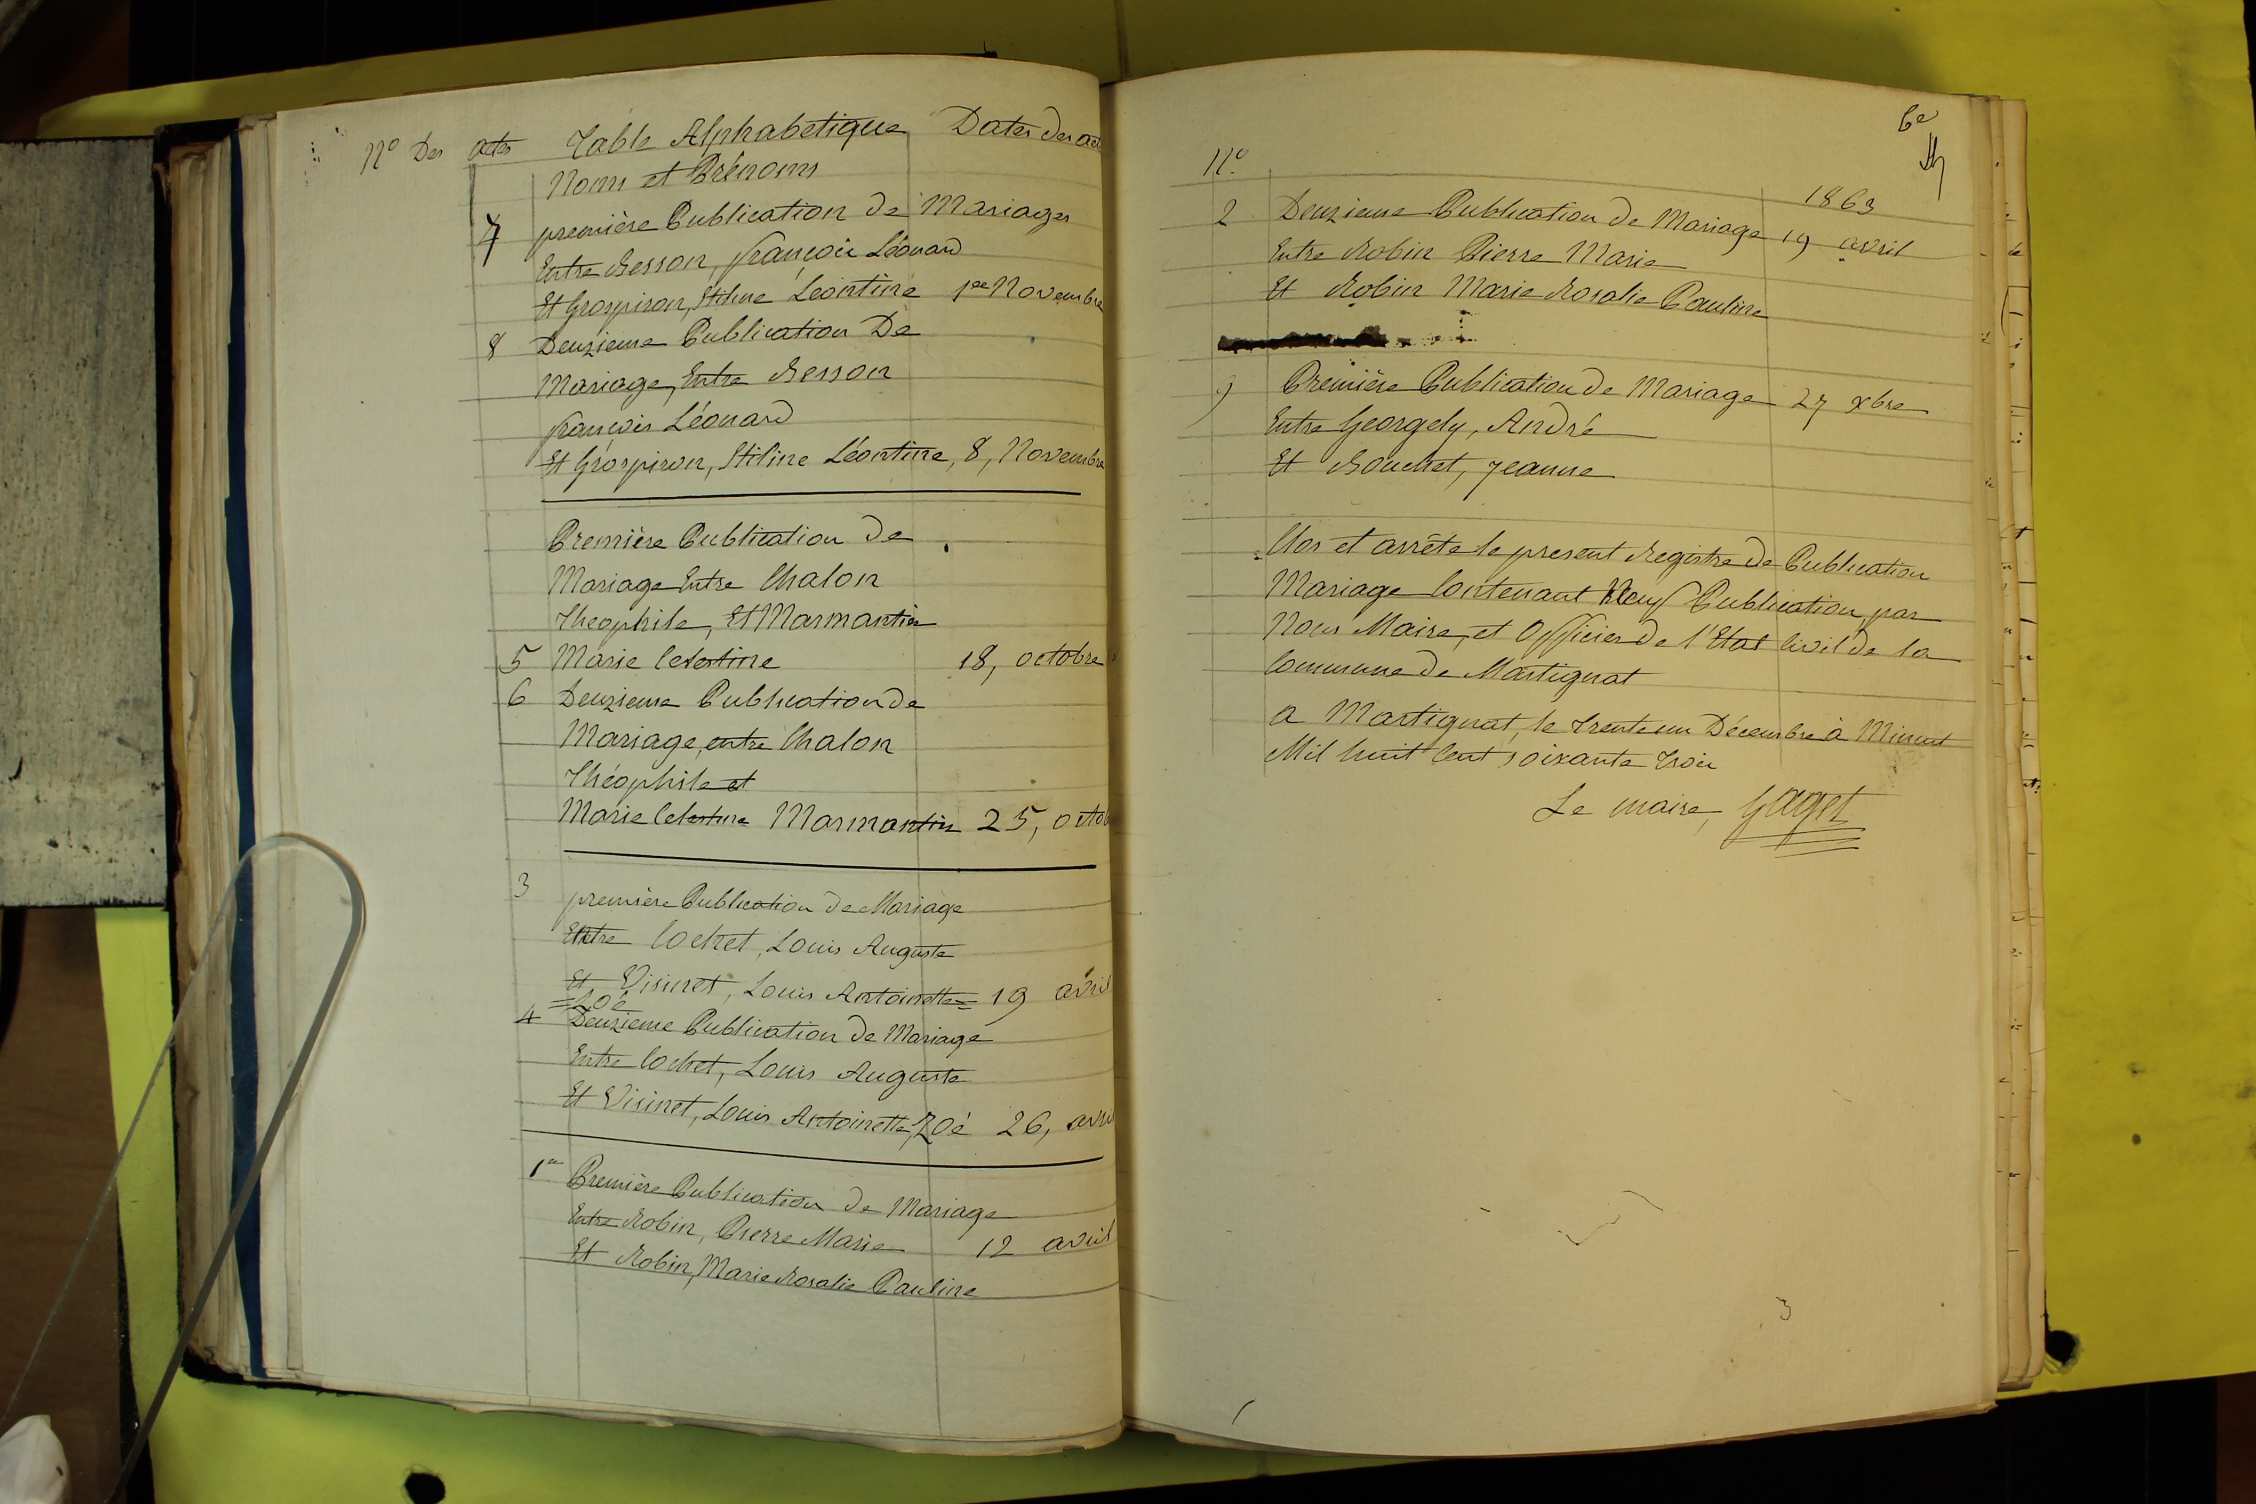 No Des actes Table Alphabetique Dates des act
Noms et Prénoms
7 première Publication de Mariages
Entre Besson, françois Léonard
Et Grospiron, Stiline Léontine 1er Novembre
8 Deuzieme Publication De
Mariage, Entre Besson
françois Léonard
Et Grospiron, Stiline Léontine, 8, Novembre
Première Publication de
Mariage Entre Chalon
Theophile, Et Marmantin
5 Marie Celestine 18, octobre
6 Deuzieme Publication de
Mariage, entre Chalon
Théophile et
Marie Celestine Marmantin 25, octob
3 première Publication de Mariage
Entre Cochet, Louis Auguste
Et Visinet, Louis Antoinette= 19 avril
=Zoé
4 Deuzieme Publication de Mariage
Entre Cochet, Louis Auguste
Et Visinet, Louis Antoinette, Zoé 26, avril
1re Première Publication de Mariage
Entre Robin, Pierre Marie 12 avril
Et Robin, Marie Rosalie Pauline
6e
No
1863
2 Deuzieme Publication de Mariage 19 avril
Entre Robin Pierre Marie
Et Robin Marie Rosalie Pauline
9 Première Publication de Mariage 27 xbre
Entre Georgely, André
Et Bouchet, Jeanne
Clos et arrête le present Registre de Publication
Mariage Contenant Neuf Publication, par
Nous Maire, et Officier de l'Etat Civil de la
Commune de Martignat
a Martignat, le trente un Décembre à Minuit
Mil huit Cent soixante trois
Le maire, Gaget
3